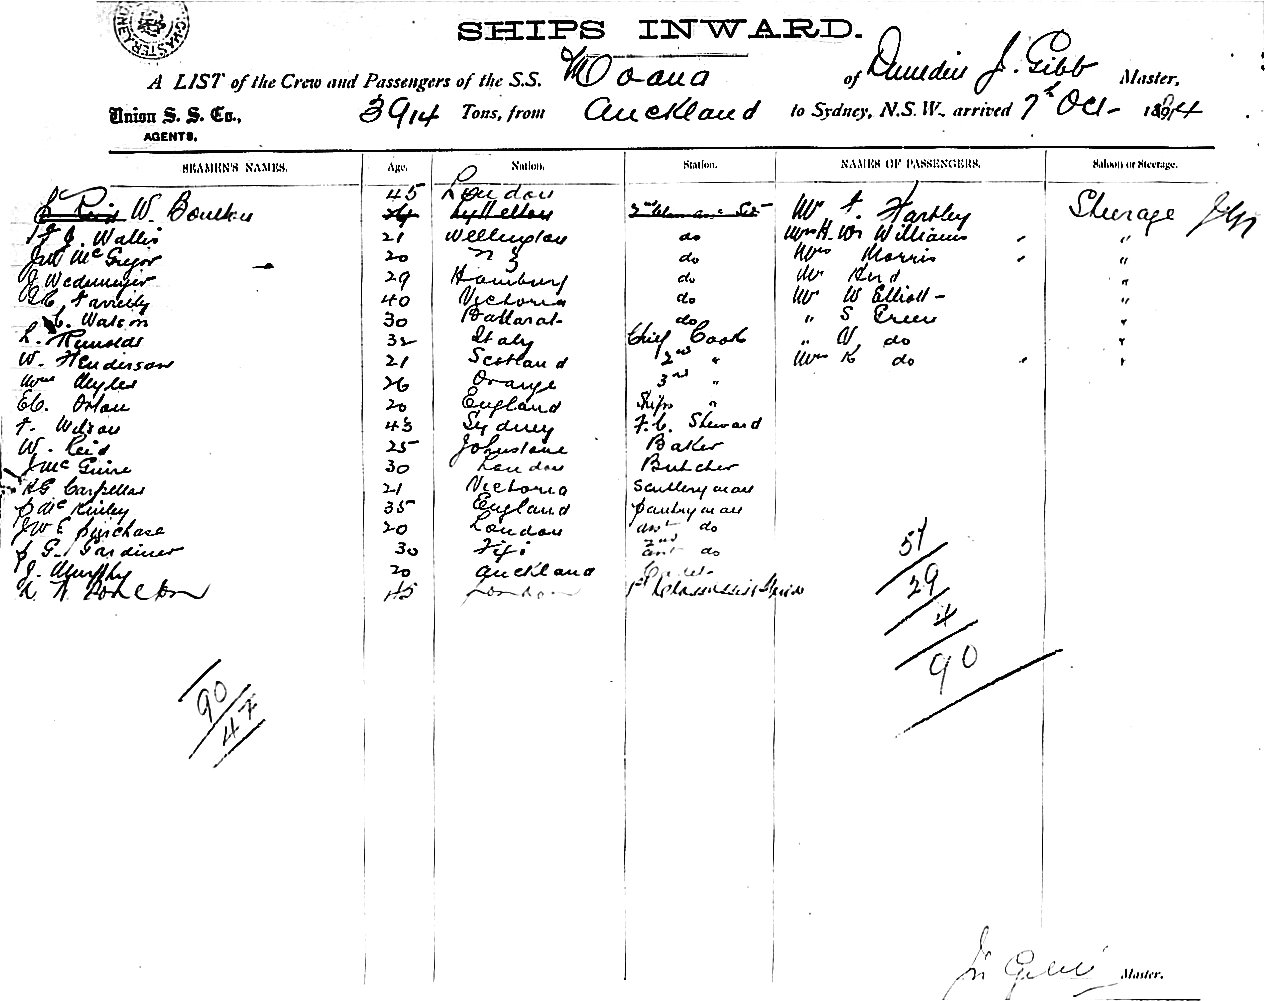 SHIPS INWARD.
A LIST of the Crew and Passengers of the S.S. Moana of Dunedin J. Gibb Master.
Union S. S. Co., 3914 Tons, from Auckland to Sydney, N.S.W., arrived 7th Oct 1894
AGENTS.
SEAMEN'S NAMES. Age. Nation. Station. NAMES OF PASSENGERS. Saloon or Steerage.
45 London
W. 24 Lyttelton Mr F. Hartley Steerage
J. Wallis 21 Wellington do Mrs H. Wm Williams "
McGregor 20 NZ do Mrs Morris "
J Wedemeyer 29 Hamburg do Mr "
Farrelly 40 Victoria do Mr W Elliott "
C. Watson 30 Ballarat do " S Green "
L. Reynolds 32 Italy Chief Cook " V do "
W. Henderson 21 Scotland 2nd " Mrs K do "
Wm 26 Orange 3rd "
20 England Ships "
F. Wilson 43 Sydney F.C. Steward
W. Reid 25 Johnstone Baker
J McGuire 30 London Butcher
21 Victoria Scullery man
McKinley 35 England pantry man
J W E Purchase 20 London asst do
G. Gardiner 30 Fiji 2nd asst do
J. Murphy 20 Auckland
45 London 1st Class
51
29
4
90
90
47
Master.